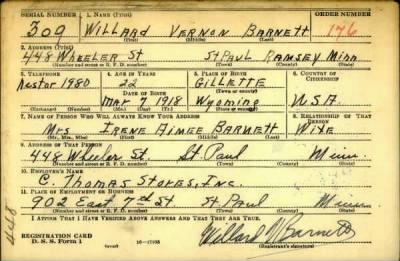 SERIAL NUMBER 1. NAME (Print) ORDER NUMBER
309 WILLARD VERNON BARNETT 176
(First) (Middle) (Last)
2. ADDRESS (Print)
448 WHEELER ST ST PAUL RAMSEY MINN
(Number and street or R. F. D. number) (Town) (County) (State)
3. TELEPHONE 4. AGE IN YEARS 5. PLACE OF BIRTH 6. COUNTRY OF CITIZENSHIP
Nestor 1980 22 GILLETTE
DATE OF BIRTH (Town or county)
Mar 7 1918 Wyoming U.S.A.
(Exchange) (Number) (Mo.) (Day) (Yr.) (State or country)
7. NAME OF PERSON WHO WILL ALWAYS KNOW YOUR ADDRESS 8. RELATIONSHIP OF THAT PERSON
Mrs IRENE AIMEE BARNETT WIFE
(Mr., Mrs., Miss) (First) (Middle) (Last)
9. ADDRESS OF THAT PERSON
448 Wheeler St St. Paul Minn.
(Number and street or R. F. D. number) (Town) (County) (State)
10. EMPLOYER'S NAME
C. THOMAS STORES, INC.
11. PLACE OF EMPLOYMENT OR BUSINESS
902 EAST 7th St St Paul Minn
(Number and street or R. F. D. number) (Town) (County) (State)
I AFFIRM THAT I HAVE VERIFIED ABOVE ANSWERS AND THAT THEY ARE TRUE.
REGISTRATION CARD
D. S. S. Form 1 (over) 16—17105 Willard V Barnett
(Registrant's signature)
448